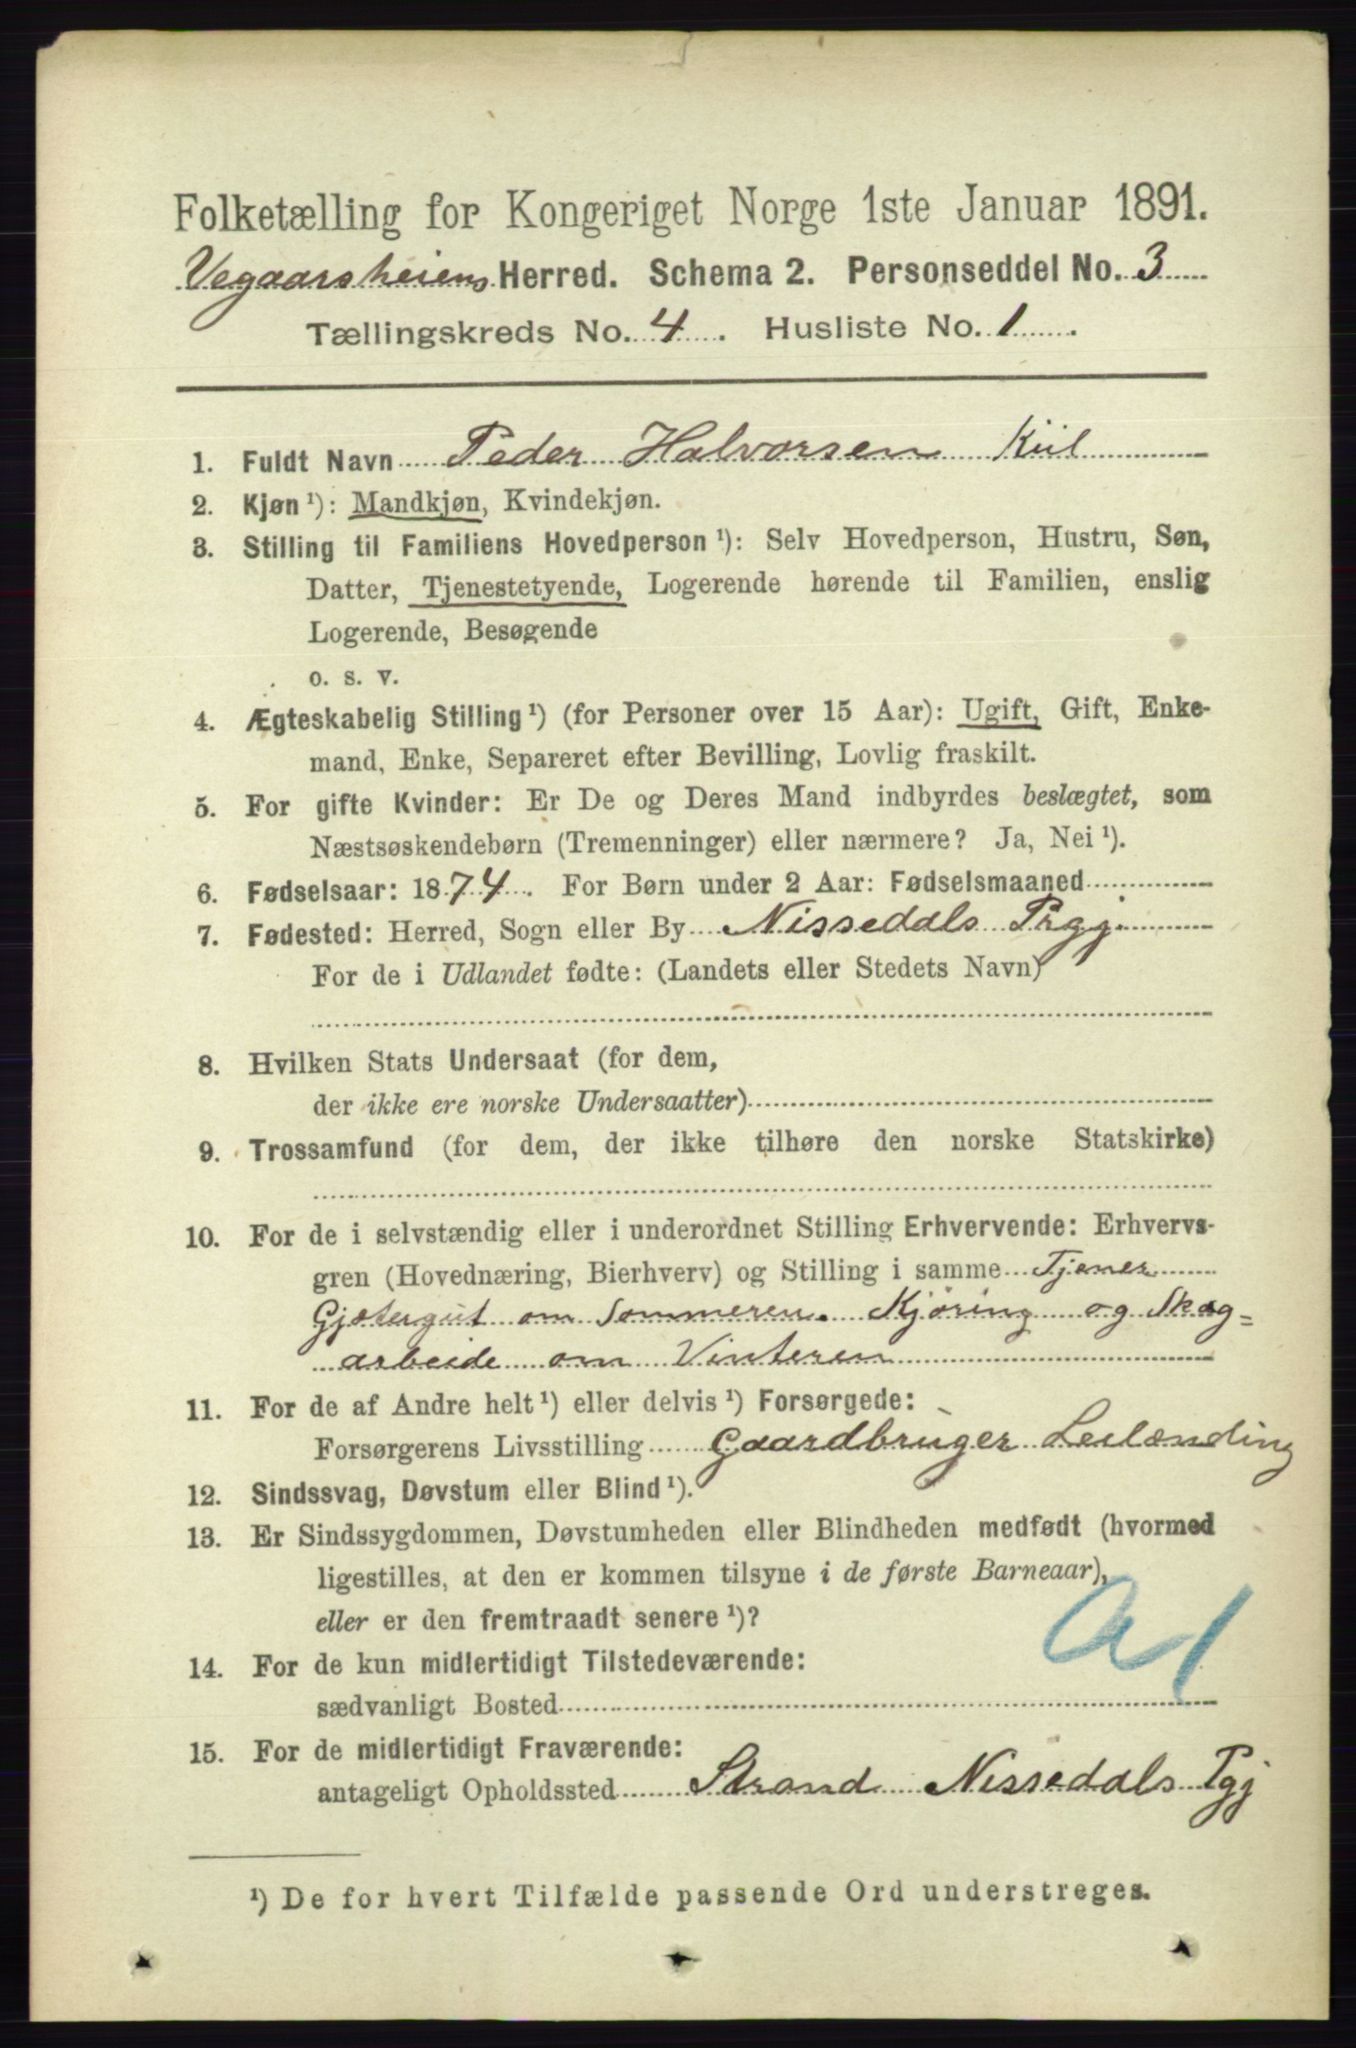 Folketælling for Kongeriget Norge 1ste Januar 1891.
Vegaarsheiens Herred. Schema 2. Personseddel No. 3
Tællingskreds No. 4. Husliste No. 1.
1. Fuldt Navn Peder Halvorsen Kiil
2. Kjøn ¹): Mandkjøn, Kvindekjøn.
3. Stilling til Familiens Hovedperson ¹): Selv Hovedperson, Hustru, Søn,
Datter, Tjenestetyende, Logerende hørende til Familien, enslig
Logerende, Besøgende
o. s. v.
4. Ægteskabelig Stilling ¹) (for Personer over 15 Aar): Ugift, Gift, Enke-
mand, Enke, Separeret efter Bevilling, Lovlig fraskilt.
5. For gifte Kvinder: Er De og Deres Mand indbyrdes beslægtet, som
Næstsøskendebørn (Tremenninger) eller nærmere? Ja, Nei ¹).
6. Fødselsaar: 1874. For Børn under 2 Aar: Fødselsmaaned
7. Fødested: Herred, Sogn eller By Nissedals Prgj.
For de i Udlandet fødte: (Landets eller Stedets Navn)
8. Hvilken Stats Undersaat (for dem,
der ikke ere norske Undersaatter)
9. Trossamfund (for dem, der ikke tilhøre den norske Statskirke)
10. For de i selvstændig eller i underordnet Stilling Erhvervende: Erhvervs-
gren (Hovednæring, Bierhverv) og Stilling i samme Tjener
Gjætergut om Sommeren. Kjøring og Skog=
arbeide om Vinteren
11. For de af Andre helt ¹) eller delvis ¹) Forsørgede:
Forsørgerens Livsstilling Gaardbruger Leilænding
12. Sindssvag, Døvstum eller Blind ¹).
13. Er Sindssygdommen, Døvstumheden eller Blindheden medfødt (hvormed
ligestilles, at den er kommen tilsyne i de første Barneaar),
eller er den fremtraadt senere ¹)?
a1
14. For de kun midlertidigt Tilstedeværende:
sædvanligt Bosted
15. For de midlertidigt Fraværende:
antageligt Opholdssted Strand Nissedals Pgj
¹) De for hvert Tilfælde passende Ord understreges.